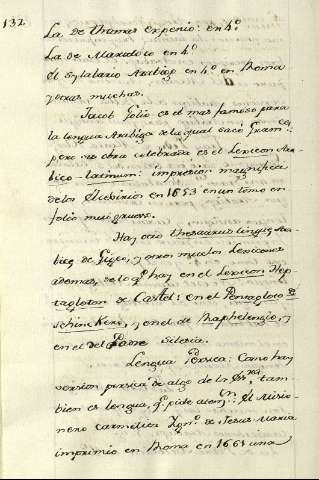 132
La de Thomas erpenio: en 4º
La de en 4º
el Sylabario Arabigo en 4º en Roma
y otras muchas.
Jacob Golio es el mas famoso para
la lengua Arabiga de la qual sacó Gramca
pero su obra celebrada es el Lexicon Ar-
bico-latinum: impresion magnifica
de los Elcebirios en 1653 en un tomo en
folio mui grueso.
Hay otro Thesaurus linguę Ara-
bicę de Gigeo, y otros muchos Lexicones
ademas, de lo q. hay en el Lexicon Hep
taglotan de Castel: en el Pentagloto de
Schinckero, y en el de Raphelengio, y
en el del Padre Silesia.
Lengua Persica: Como hay
version persica de algo de la tam-
bien es lengua, q. pide atenon. El Misio-
nero carmelita Ygno. de Jesus Maria
imprimio en Roma en 1661 una